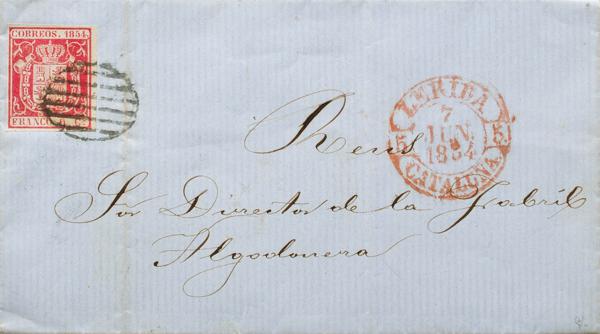 CORREOS. 1854.
FRANCO 6 Cs
LERIDA
7
JUN.
1854
5 5
CATALUÑA
Reus
Sor Director de la Fabril
Algodonera